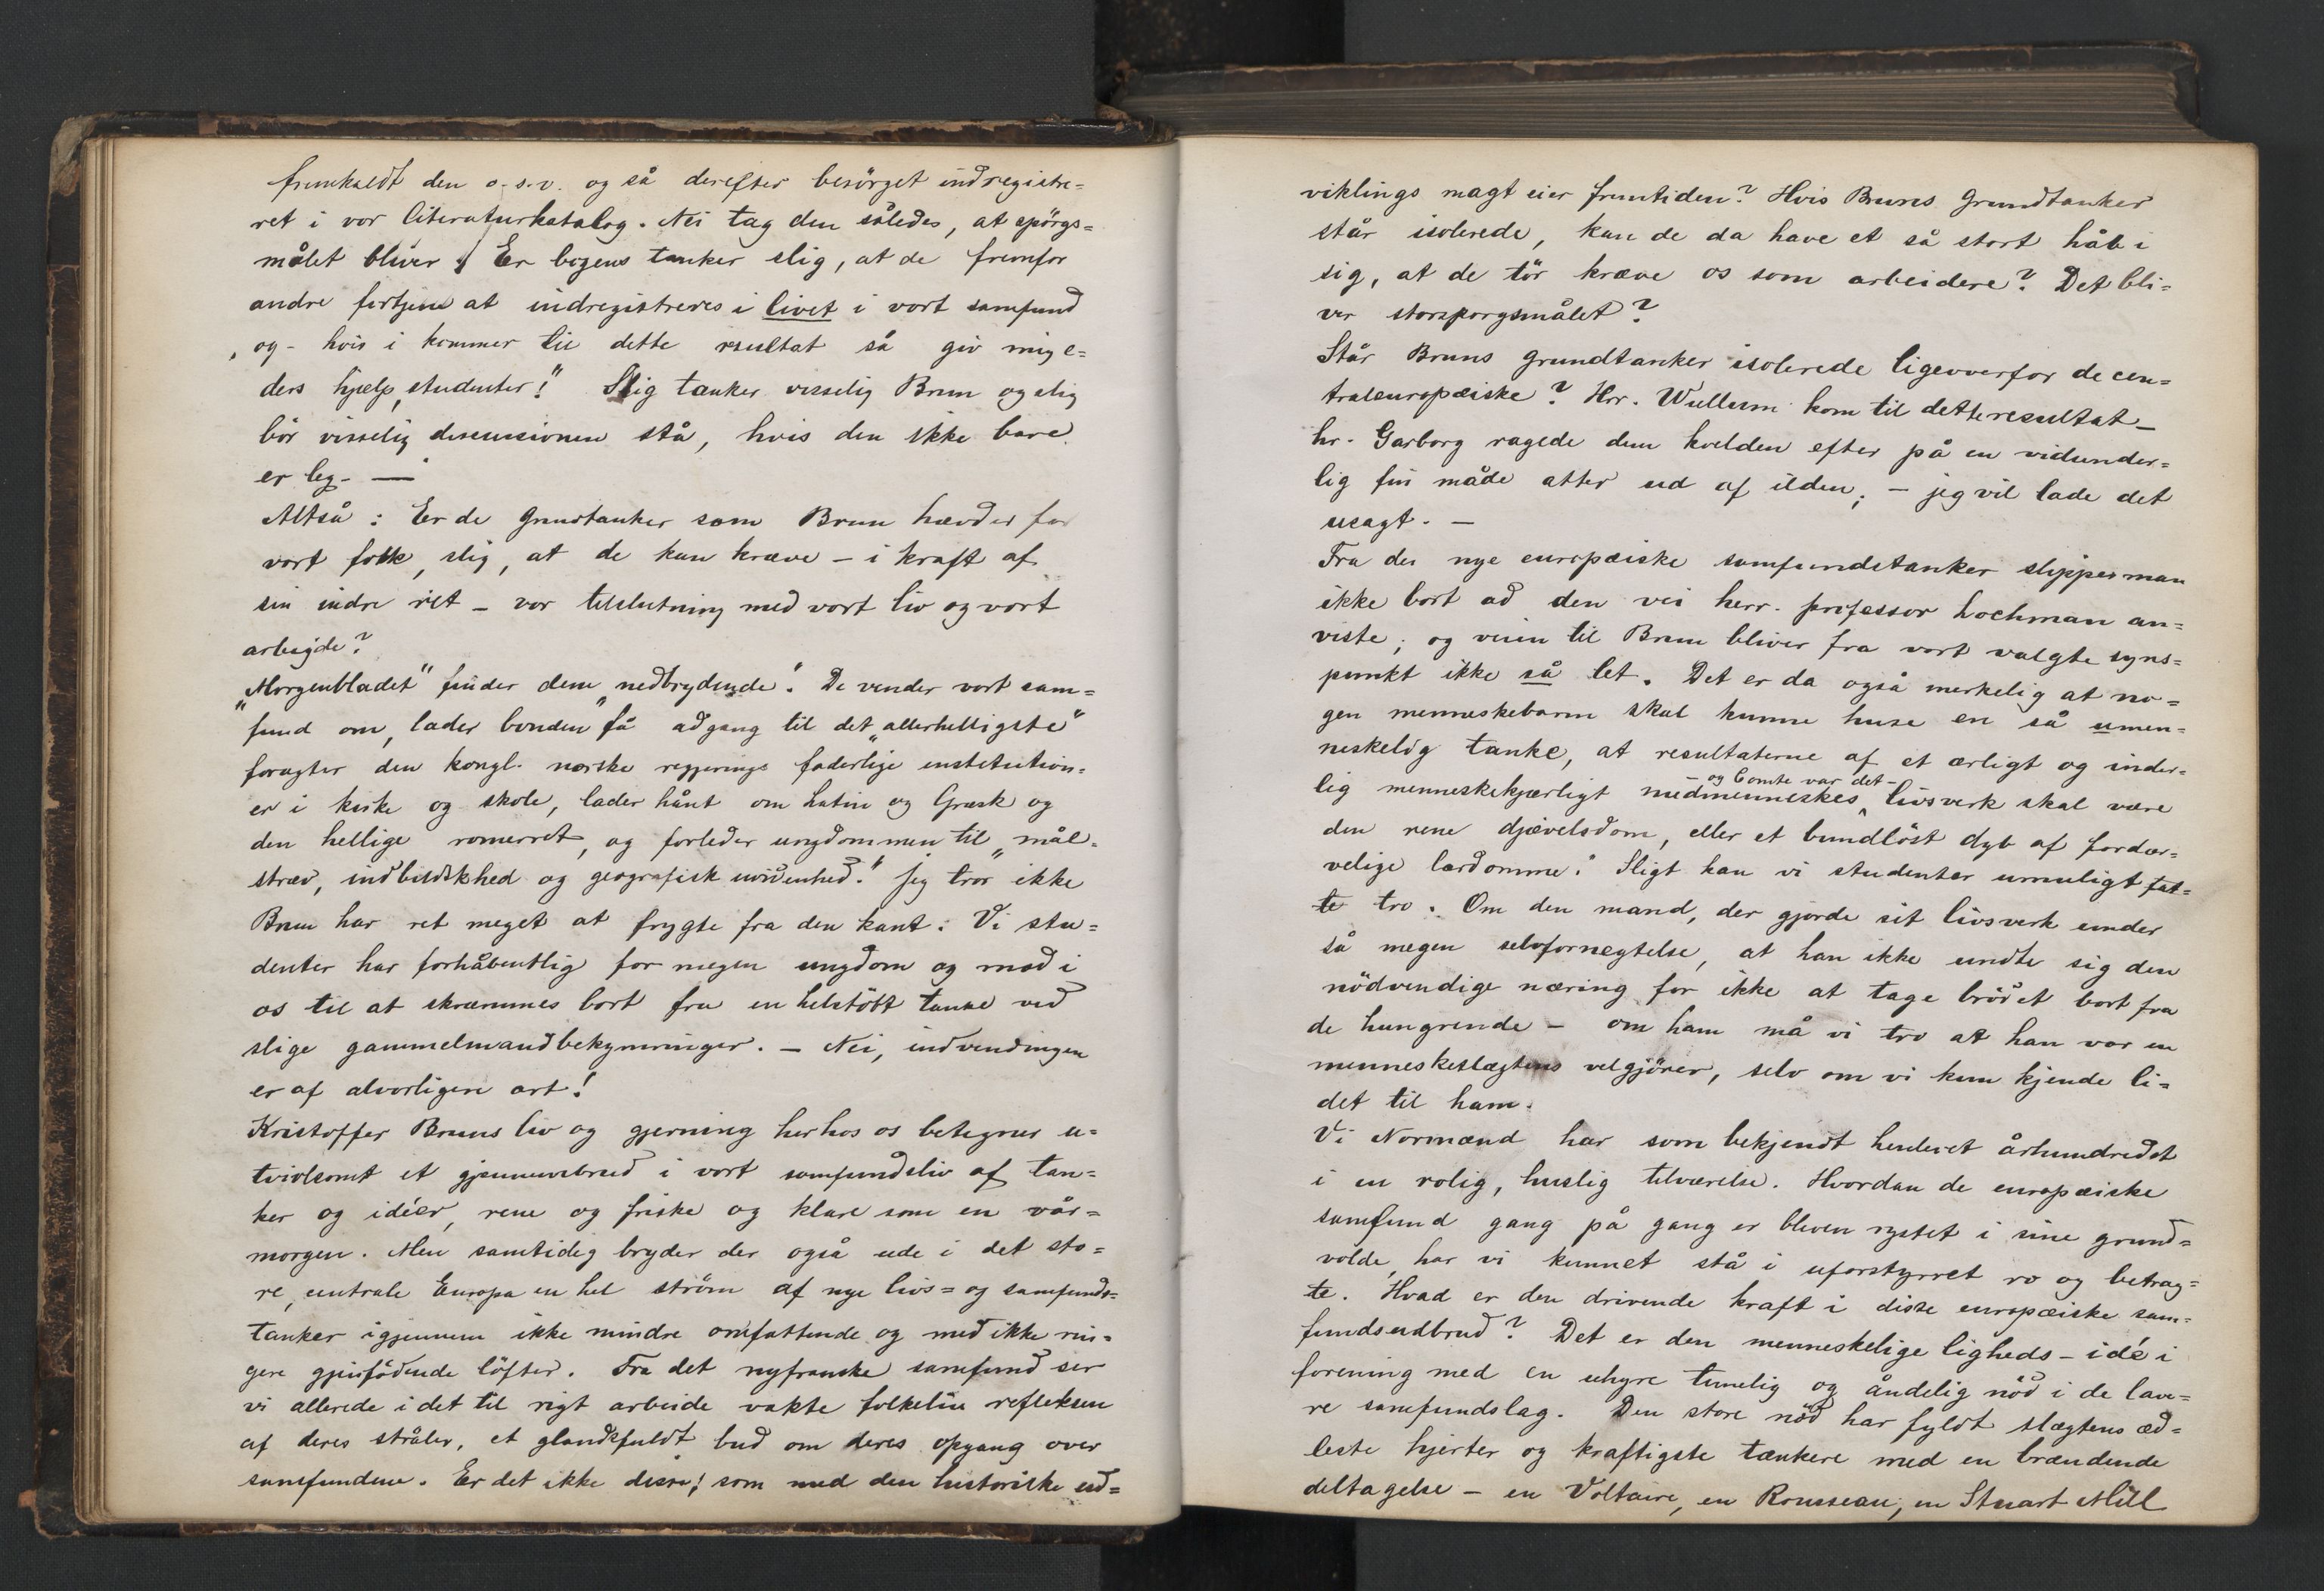 fremkaldt den o.s.v. og så derefter besörget indregistre=
ret i vor literaturkatalog. Nei tag den således, at spörgs=
målet bliver: Er bogens tanker slig, at de fremfor
andre fortjene at indregistreres i livet i vort samfund
, og - hvis i kommer til dette resultat så giv mig e=
ders hjælp, studenter!" Slig tænker visselig Brun og slig
bör visselig discussionen stå, hvis den ikke bare
er leg. —
Altså: Er de grundtanker som Brun hævder for
vort folk, slig, at de kan kræve – i kraft af
sin indre ret – vor tilslutning med vort liv og vort
arbejde?
„Morgenbladet" finder dem „nedbrydende". De vender vort sam=
fund om, lader bonden få adgang til det „allerhelligste"
foragter den kongl. norske regjerings faderlige institution=
er i kirke og skole, lader hånt om Latin og Græsk og
den hellige romerret, og forleder ungdommen til „mål=
stræv, indbildskhed og geografisk uvidenhed." Jeg tror ikke
Brun har ret meget at frygte fra den kant: Vi stu=
denter har forhåbentlig for megen ungdom og mod i
os til at skræmmes bort fra en helstöbt tanke ved
slige gammelmandbekymringer. – Nei, indvendingen
er af alvorligere art!
Kristoffer Bruns liv og gjerning her hos os betegner u=
tvivlsomt et gjennembrud i vort samfundsliv af tan=
ker og idéer, rene og friske og klare som en vår=
morgen. Men samtidig bryder der også ude i det sto=
re, centrale Europa en hel ström af nye livs= og samfunds=
tanker igjennem ikke mindre omfattende og med ikke rin=
gere gjenfödende löfter. Fra det nyfranske samfund ser
vi allerede i det til rigt arbeide vakte folkeliv refleksen
af deres stråler, et glandsfuldt bud om deres opgang over
samfundene. Er det ikke disse, som med den historiske ud=
viklings magt eier fremtiden? Hvis Bruns grundtanker
står isolerede, kan de da have et så stort håb i
sig, at de tör kræve os som arbeidere? Det bli=
ver storspørgsmålet?
Står Bruns grundtanker isolerede ligeoverfor de cen=
traleuropæiske? Hrr. Wullum kom til dette resultat –
hr. Garborg ragede dem kvelden efter på en vidunder=
lig fin måde atter ud af ilden; – jeg vil lade det
usagt. –
Fra de nye europæiske samfundstanker slipper man
ikke bort ad den vei herr. professor Lochman an=
viste; og veien til Brun bliver fra vort valgte syns=
punkt ikke så let. Det er da også merkelig at no=
gen menneskebarn skal kunne huse en så umen=
neskelig tanke, at resultaterne af et ærligt og inder=
lig menneskekjærligt medmenneskes – og Comte var det – livsverk skal være
den rene djævelsdom, eller et bundlöst dyb af fordær=
velige lærdomme. Sligt kan vi studenter umuligt fat=
te tro. Om den mand, der gjorde sit livsverk under
så megen selvfornegtelse, at han ikke undte sig den
nödvendige næring for ikke at tage brödet bort fra
de hungrende – om ham må vi tro at han var en
menneskeslægtens velgjörer, selv om vi kun kjende li=
det til ham.
Vi Normænd har som bekjendt henlevet århundredet
i en rolig, huslig tilværelse. Hvordan de europæiske
samfund gang på gang er bleven rystet i sine grund=
volde, har vi kunnet stå i uforstyrret ro og betrag=
te. Hvad er den drivende kraft i disse europæiske sam=
fundsudbrud? Det er den menneskelige ligheds-idé i
forening med en uhyre timelig og åndelig nöd i de lave=
re samfundslag. Den store nöd har fyldt slægtens æd=
leste hjerter og kraftigste tænkere med en brændende
deltagelse – en Voltaire, en Rousseau, en Stuart Mill